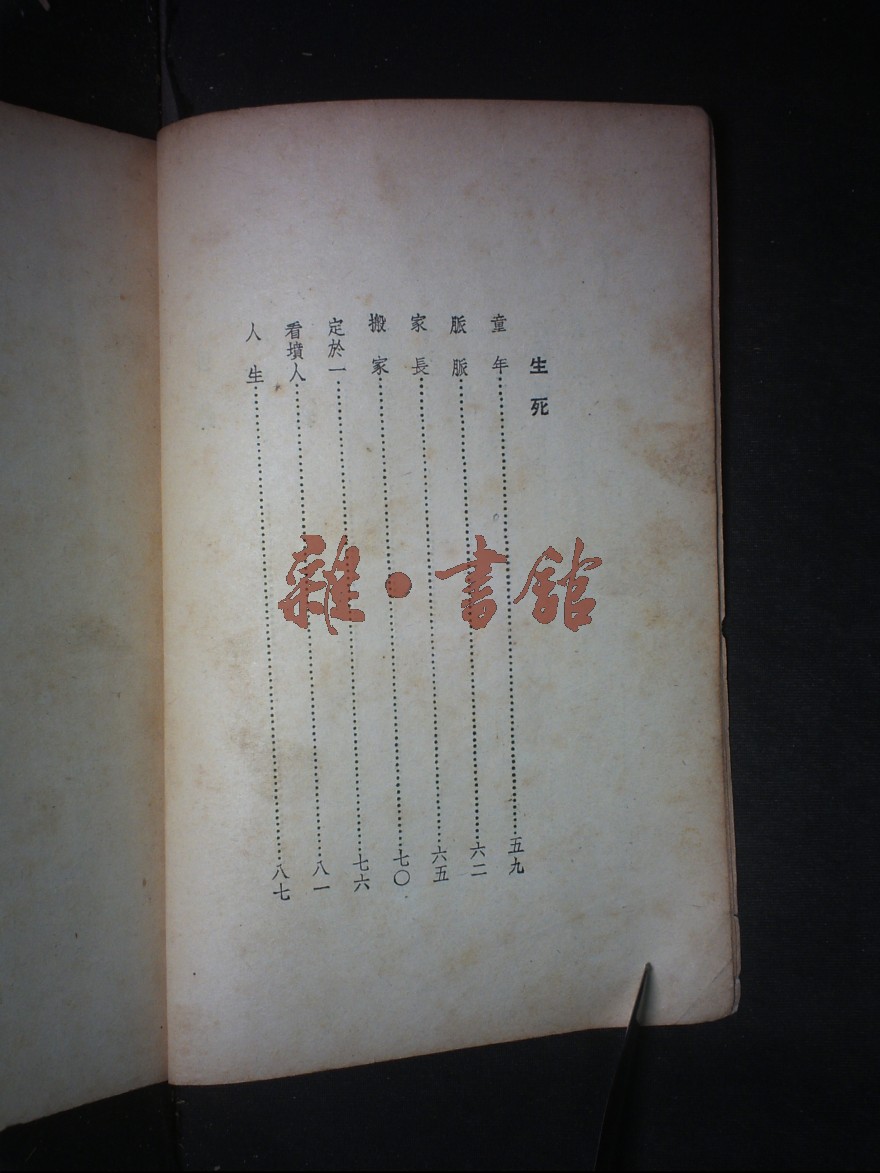 生死
童年……五九
脈脈……六二
家長……六五
搬家……七〇
定於一……七六
看墳人……八一
人生……八七
雜·書館